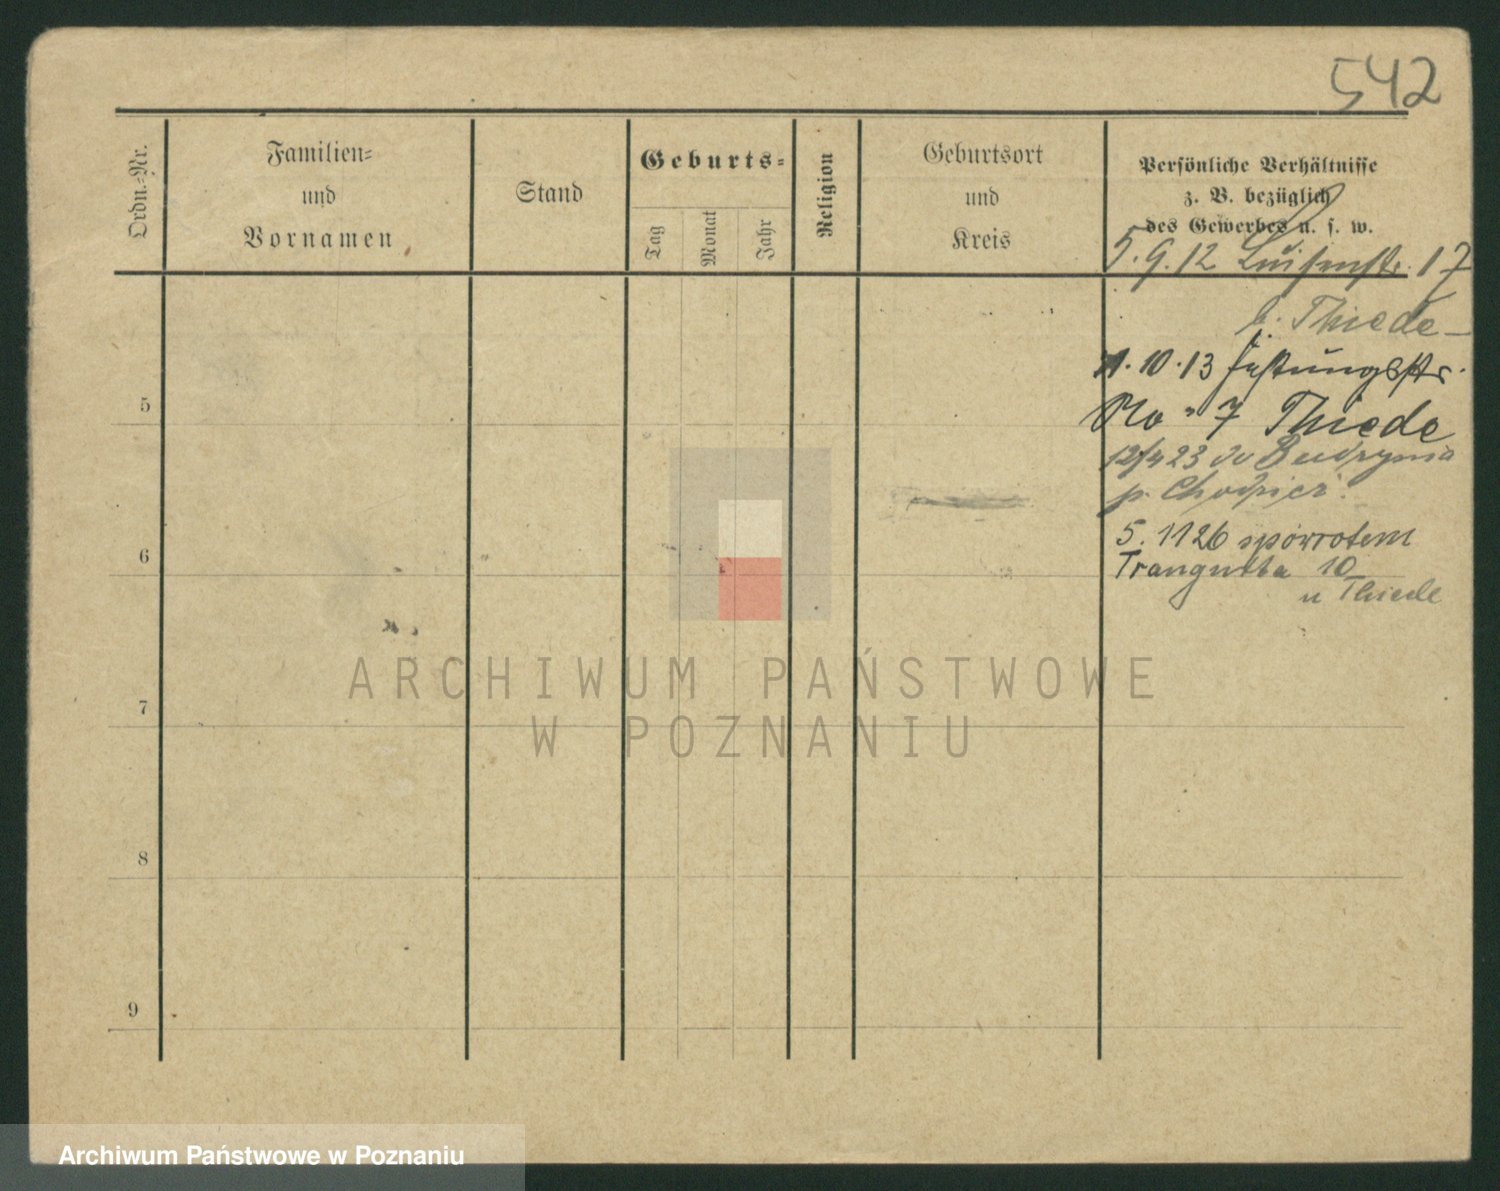 542
Ordn.-Nr.
Familien-
und
Vornamen
Stand
Geburts-
Tag
Monat
Jahr
Religion
Geburtsort
und
Kreis
Persönliche Verhältnisse
z. B. bezüglich
des Gewerbes u. s. w.
5.9.12 Luisenstr. 17
b. Thiede
1.10.13 Festungsstr.
No 7 Thiede
12/4 23 do Budzynia
p. Chodzież
5. 11 26 spowrotem
10
u Thiede
5
6
7
8
9
ARCHIWUM PAŃSTWOWE
W POZNANIU
Archiwum Państwowe w Poznaniu